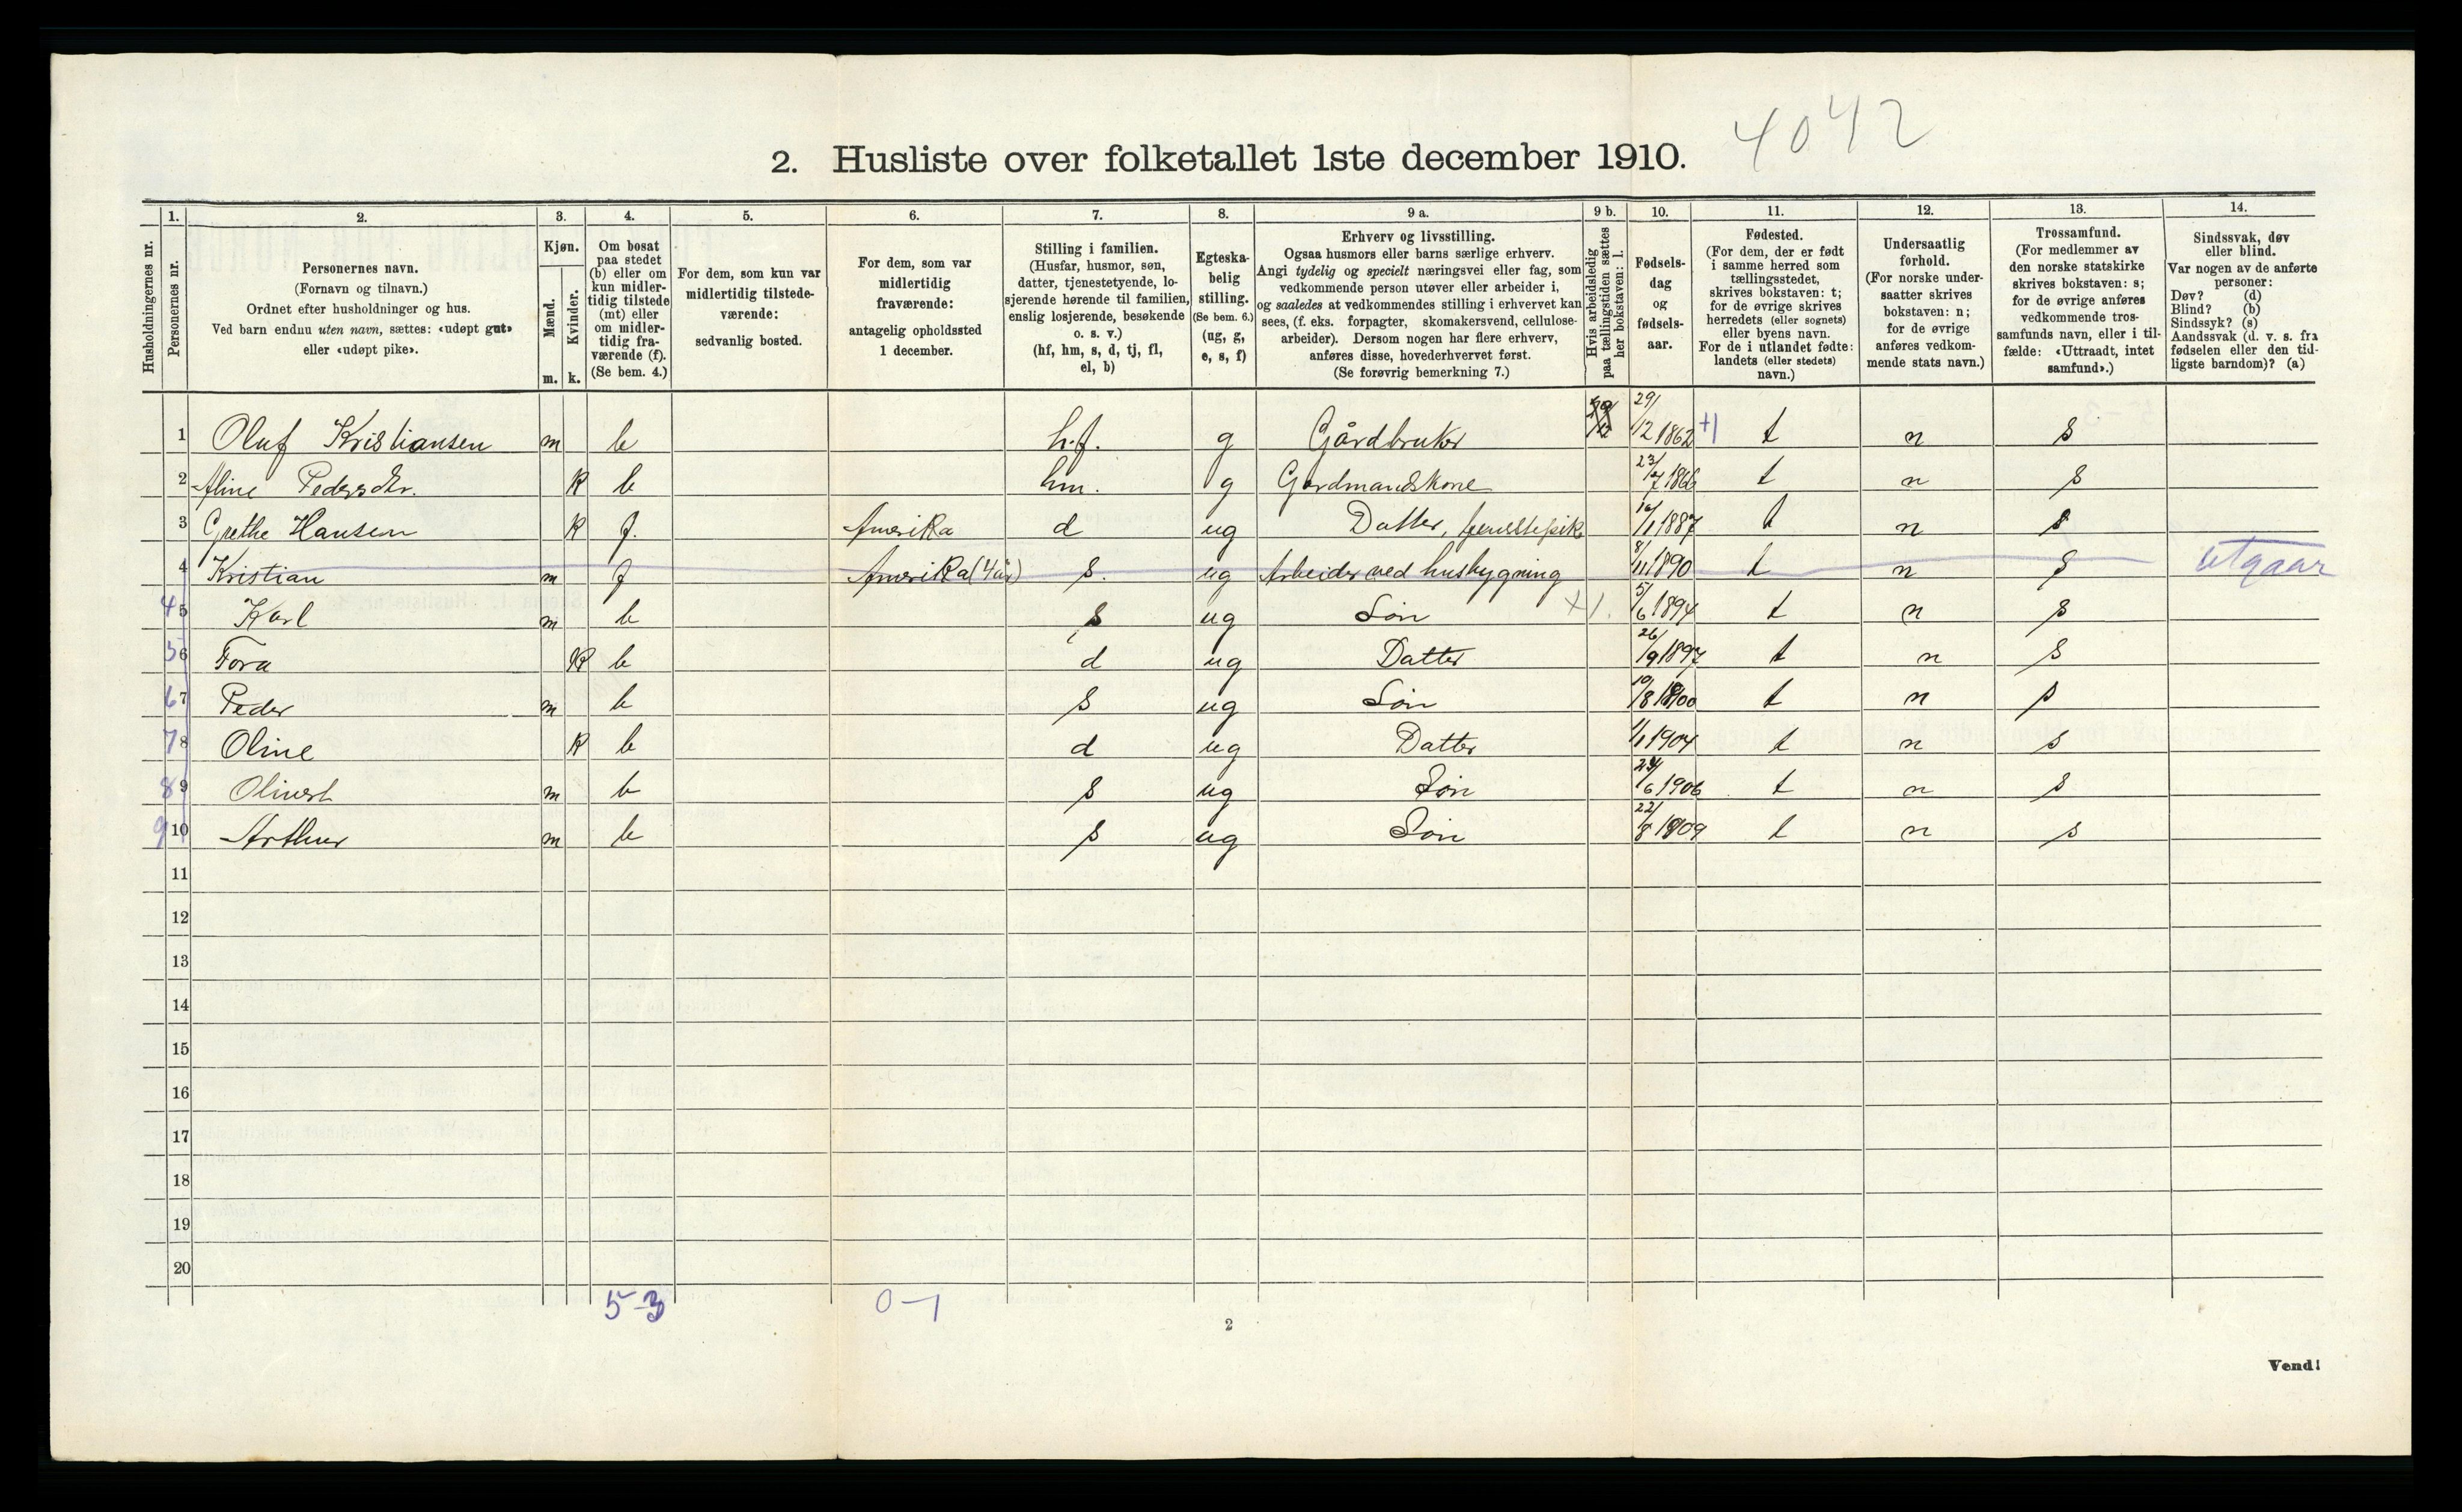 4042
2. Husliste over folketallet 1ste december 1910.
Husholdningernes nr.
1.
Personernes nr.
2.
Personernes navn.
(Fornavn og tilnavn.)
Ordnet efter husholdninger og hus.
Ved barn endnu uten navn, sættes: «udøpt gut»
eller «udøpt pike».
3.
Kjøn.
Mænd.
Kvinder.
m. k.
4.
Om bosat
paa stedet
(b) eller om
kun midler-
tidig tilstede
(mt) eller
om midler-
tidig fra-
værende (f).
(Se bem. 4.)
5.
For dem, som kun var
midlertidig tilstede-
værende:
sedvanlig bosted.
6.
For dem, som var
midlertidig
fraværende:
antagelig opholdssted
1 december.
7.
Stilling i familien.
(Husfar, husmor, søn,
datter, tjenestetyende, lo-
sjerende hørende til familien,
enslig losjerende, besøkende
o. s. v.)
(hf, hm, s, d, tj, fl,
el, b)
8.
Egteska-
belig
stilling.
(Se bem. 6.)
(ug, g,
e, s, f)
9 a.
Erhverv og livsstilling.
Ogsaa husmors eller barns særlige erhverv.
Angi tydelig og specielt næringsvei eller fag, som
vedkommende person utøver eller arbeider i,
og saaledes at vedkommendes stilling i erhvervet kan
sees, (f. eks. forpagter, skomakersvend, cellulose-
arbeider). Dersom nogen har flere erhverv,
anføres disse, hovederhvervet først.
(Se forøvrig bemerkning 7.)
9 b.
Hvis arbeidsledig
paa tællingstiden sættes
her bokstaven: l.
10.
Fødsels-
dag
og
fødsels-
aar.
11.
Fødested.
(For dem, der er født
i samme herred som
tællingsstedet,
skrives bokstaven: t;
for de øvrige skrives
herredets (eller sognets)
eller byens navn.
For de i utlandet fødte:
landets (eller stedets)
navn.)
12.
Undersaatlig
forhold.
(For norske under-
saatter skrives
bokstaven: n;
for de øvrige
anføres vedkom-
mende stats navn.)
13.
Trossamfund.
(For medlemmer av
den norske statskirke
skrives bokstaven: s;
for de øvrige anføres
vedkommende tros-
samfunds navn, eller i til-
fælde: «Uttraadt, intet
samfund».)
14.
Sindssvak, døv
eller blind.
Var nogen av de anførte
personer:
Døv? (d)
Blind? (b)
Sindssyk? (s)
Aandssvak (d. v. s. fra
fødselen eller den tid-
ligste barndom)? (a)
1 Oluf Kristiansen m b hf. g Gårdbruker 29/12 1862 +1 t n s
2 Aline Pedersdtr. k b hm. g Gardmandskone 23/7 1866 t n s
3 Grethe Hansen k f. Amerika d ug Datter, 1887 t n s
4 Kristian m f Amerika (4 år) s. ug Arbeider ved husbygning 8/11 1890 t n s utgaar
4 5 Karl m b s ug Søn +1. 5/6 1894 t n s
5 6 Tora k b d ug Datter 26/9 1897 t n s
6 7 Peder m b s ug Søn 10/8 1900 t n s
7 8 Oline k b d ug Datter 1/1 1904 t n s
8 9 Olivert m b s ug Søn 24/6 1906 t n s
9 10 Arthur m b s ug Søn 22/8 1909 t n s
11
12
13
14
15
16
17
18
19
20
5-3 0-1
2
Vend!